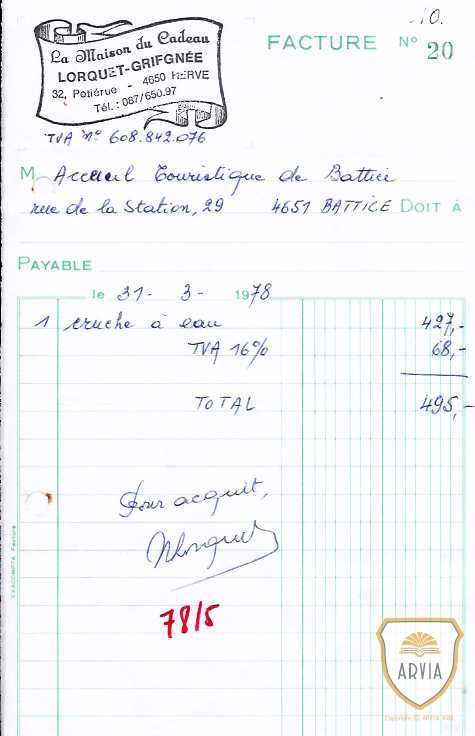 La Maison du Cadeau
LORQUET-GRIFGNÉE
32, Potiérue - 4650 HERVE
Tél.: 087/650.97
TVA n° 608.842.076
10.
FACTURE N° 20
M Accueil Touristique de Battice
rue de la Station, 29 4651 BATTICE DOIT À
PAYABLE
le 31- 3- 1978
1 cruche à eau 427,-
TVA 16% 68,-
TOTAL 495,-
Pour acquit,
78/5
EXACOMPTA Facture
ARVIA
Copyright © ARVIA ASBL